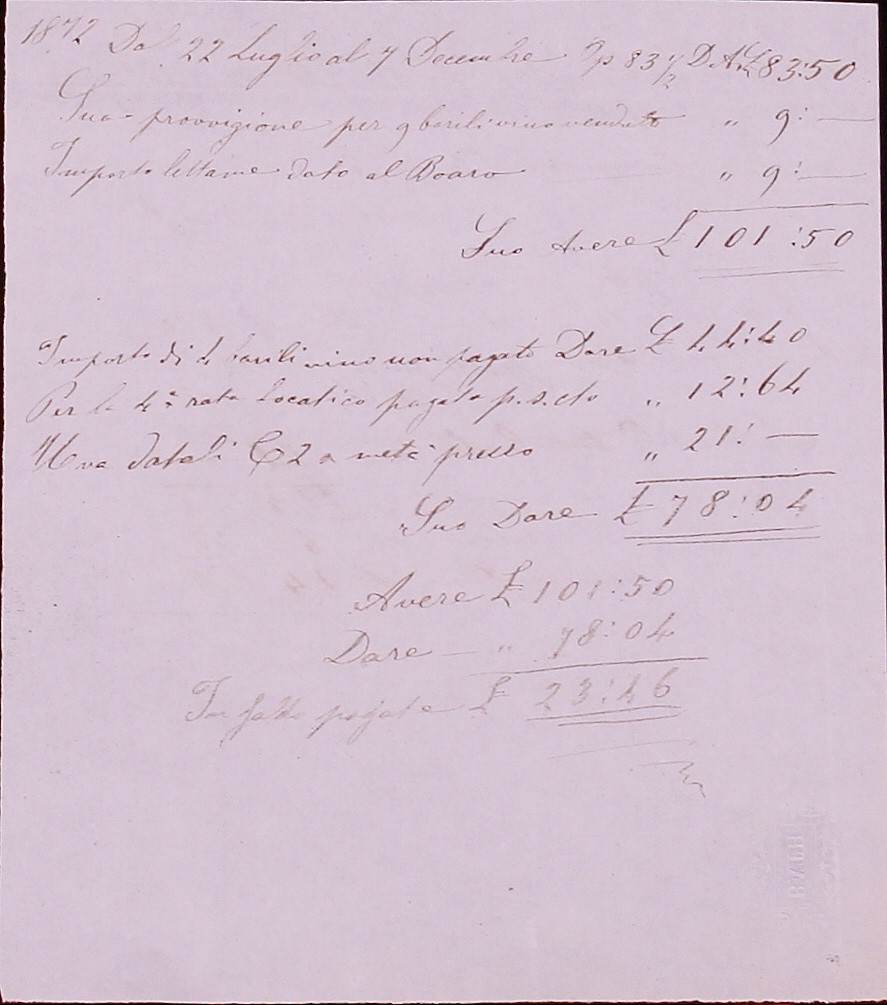 1872 Dal 22 Luglio al 7 Decembre 83 1/2 D. A. £ 83:50
Sua provvigione per 9 barili vino venduto " 9:—
Importo lettame dato al Boaro " 9:—
Suo Avere £ 101:50
Importo di 4 barili vino non pagato Dare £ 44:40
Per la 4a rata locatico pagata p. s. cto " 12:64
Uva datali C 2 a metà prezzo " 21:—
Suo Dare £ 78:04
Avere £ 101:50
Dare — " 78:04
pagate £ 23:46